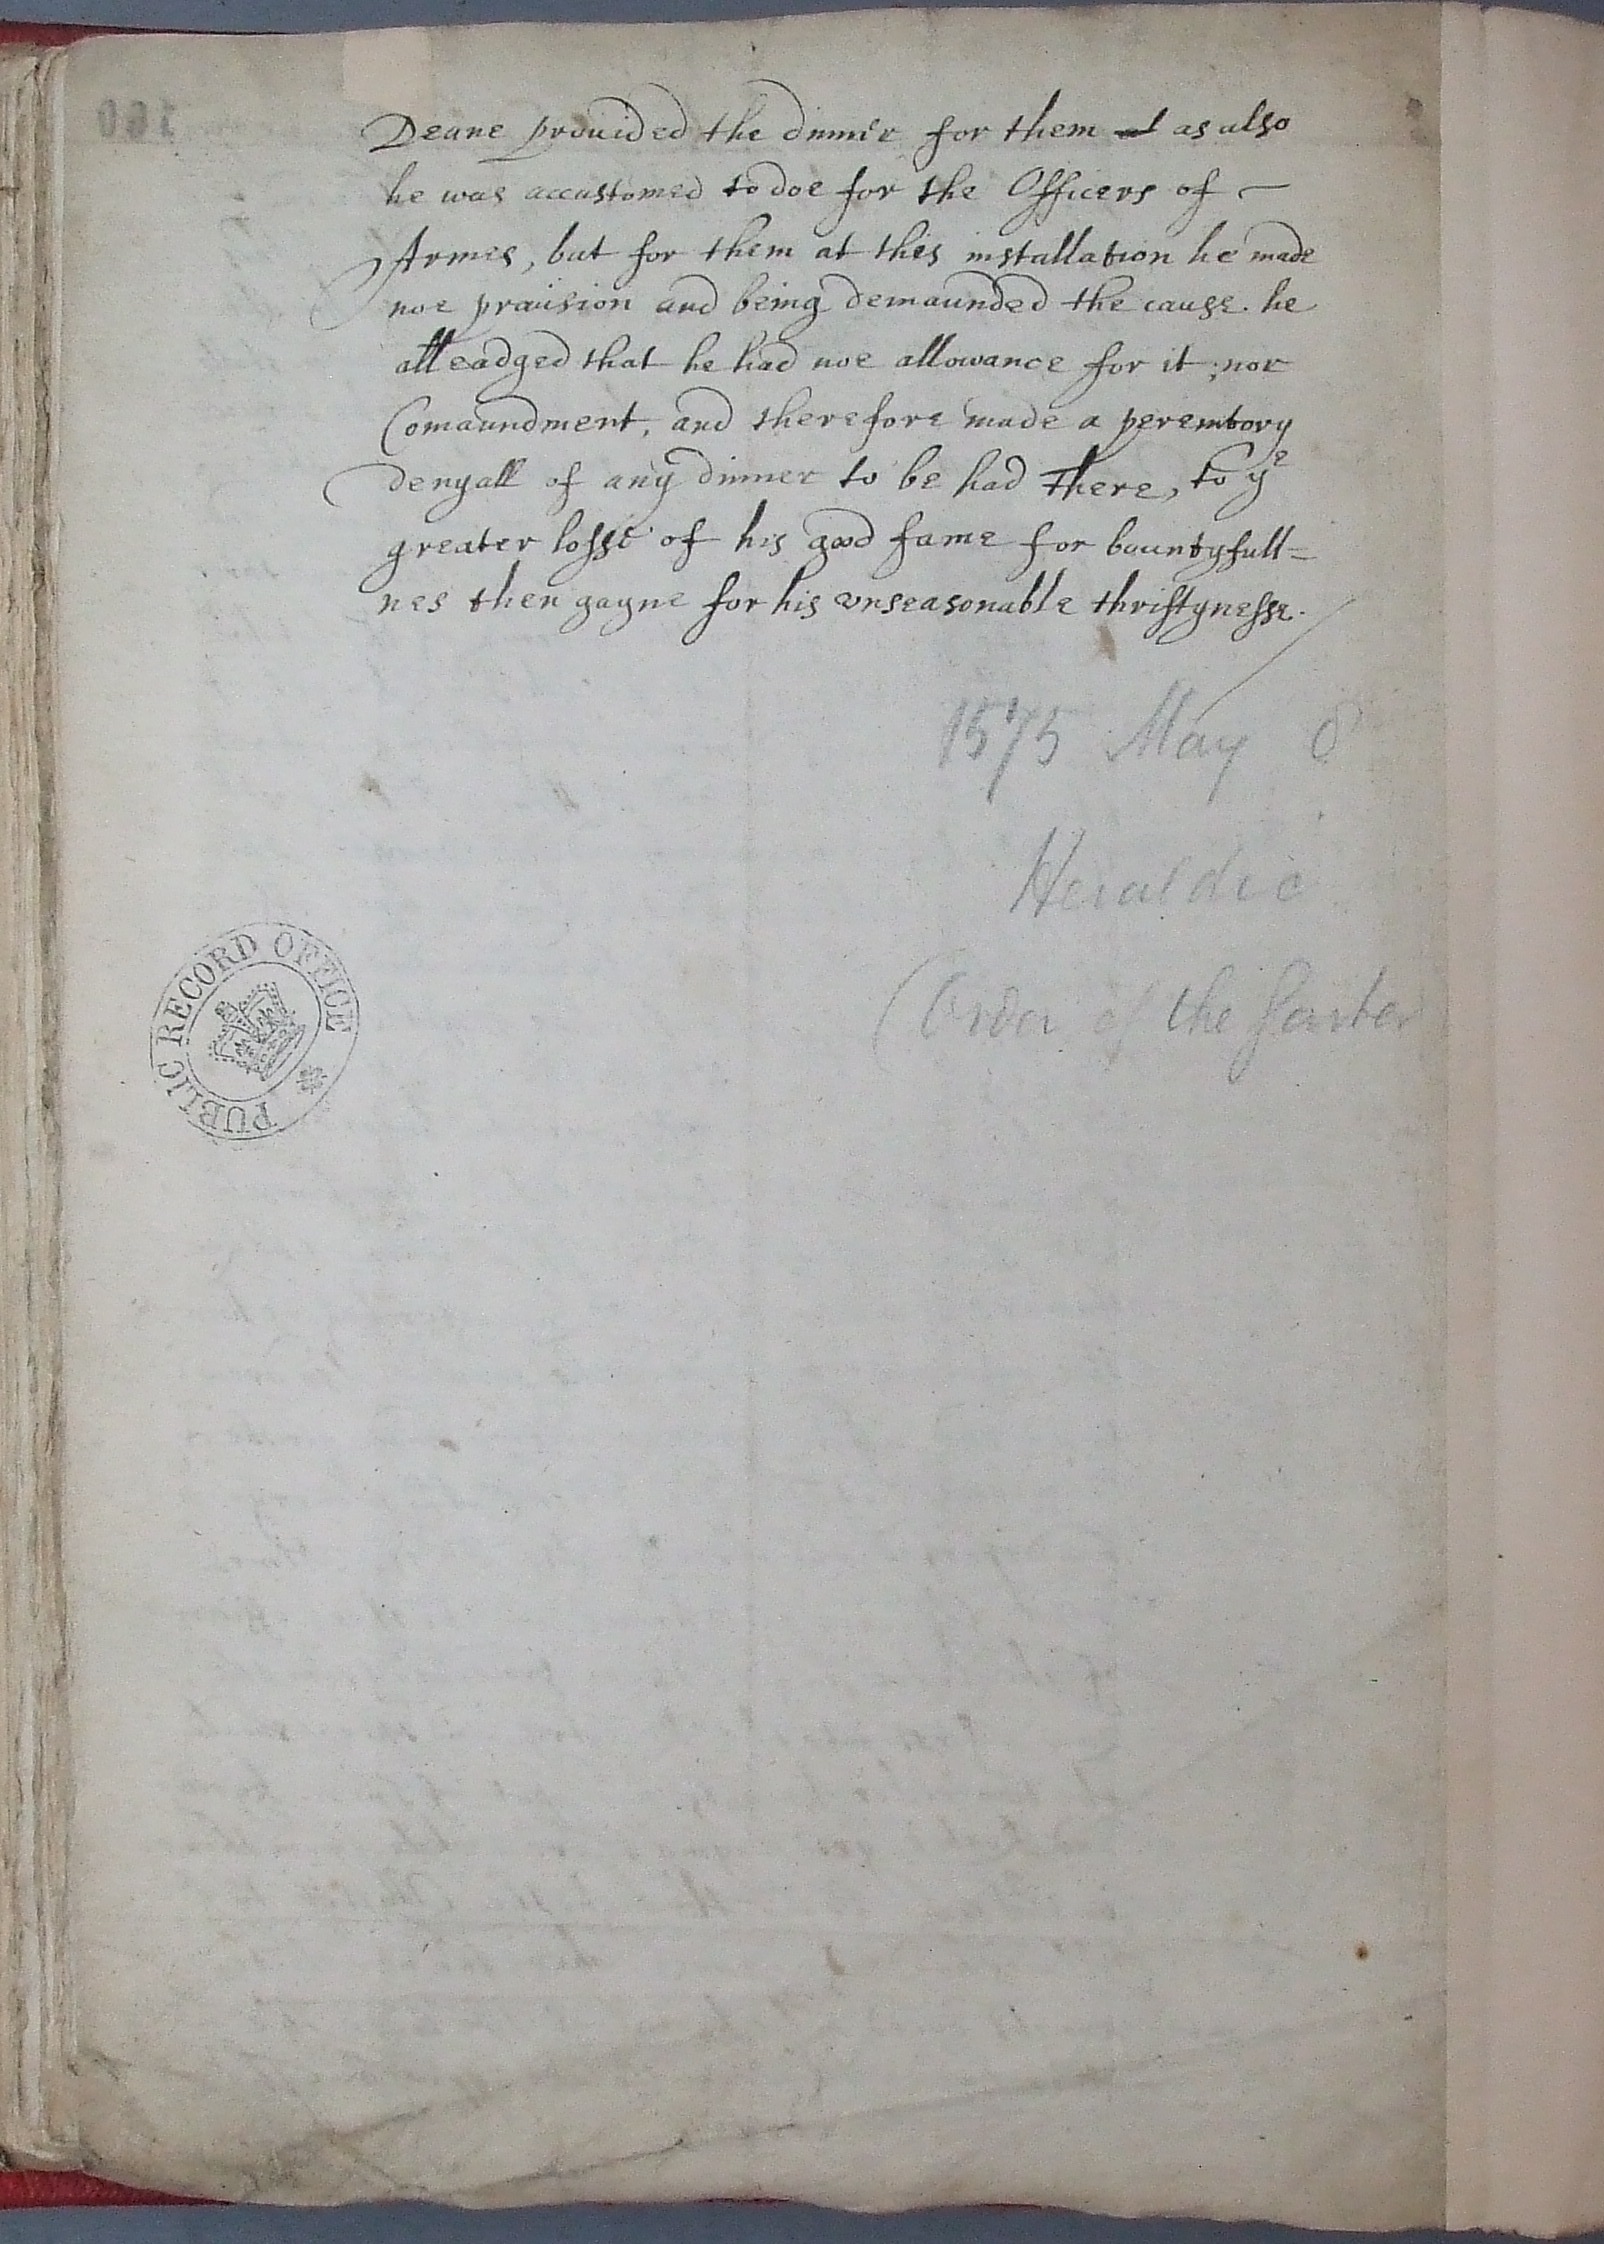 Deane prouided the dinner for them as also
he was accustomed to doe for the Officers of
Armes, but for them at this installation he made
noe prouision and being demaunded the cause. he
alleadged that he had noe allowance for it; nor
Comaundment, and therefore made a peremtory
denyall of any dinner to be had there, to yᵉ
greater losse of his good fame for bountyfull=
nes then gayne for his vnseasonable thriftynesse.
1575 May 8
Heraldic
(Order of the Garter
PUBLIC RECORD OFFICE
160